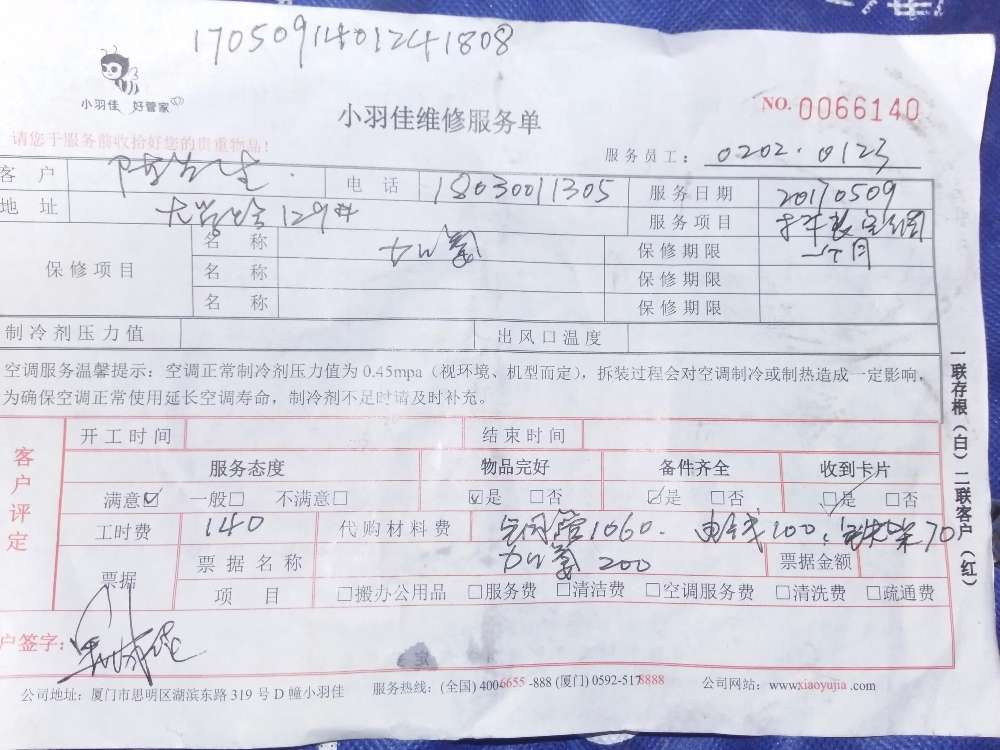 1705091401241808
小羽佳 好管家
小羽佳维修服务单
NO. 0066140
请您于服务前收拾好您的贵重物品!
服务员工: 0202.0123
客户 电话 18030011305 服务日期 20170509
地址 129# 服务项目
保修项目
名称 加氟 保修期限 一个月
名称 保修期限
名称 保修期限
制冷剂压力值 出风口温度
空调服务温馨提示:空调正常制冷剂压力值为 0.45mpa(视环境、机型而定),拆装过程会对空调制冷或制热造成一定影响,
为确保空调正常使用延长空调寿命,制冷剂不足时请及时补充。
一联存根(白)二联客户(红)
客户评定
开工时间 结束时间
服务态度 物品完好 备件齐全 收到卡片
满意☑ 一般□ 不满意□ ☑是 □否 ☑是 □否 ☑是 □否
工时费 140 代购材料费 1060. 电线100. 铁架70
加氟 200
票据 票据名称 票据金额
项目 □搬办公用品 □服务费 □清洁费 □空调服务费 □清洗费 □疏通费
户签字:
公司地址:厦门市思明区湖滨东路 319 号 D 幢小羽佳 服务热线:(全国) 4006655-888 (厦门) 0592-5178888 公司网站:www.xiaoyujia.com